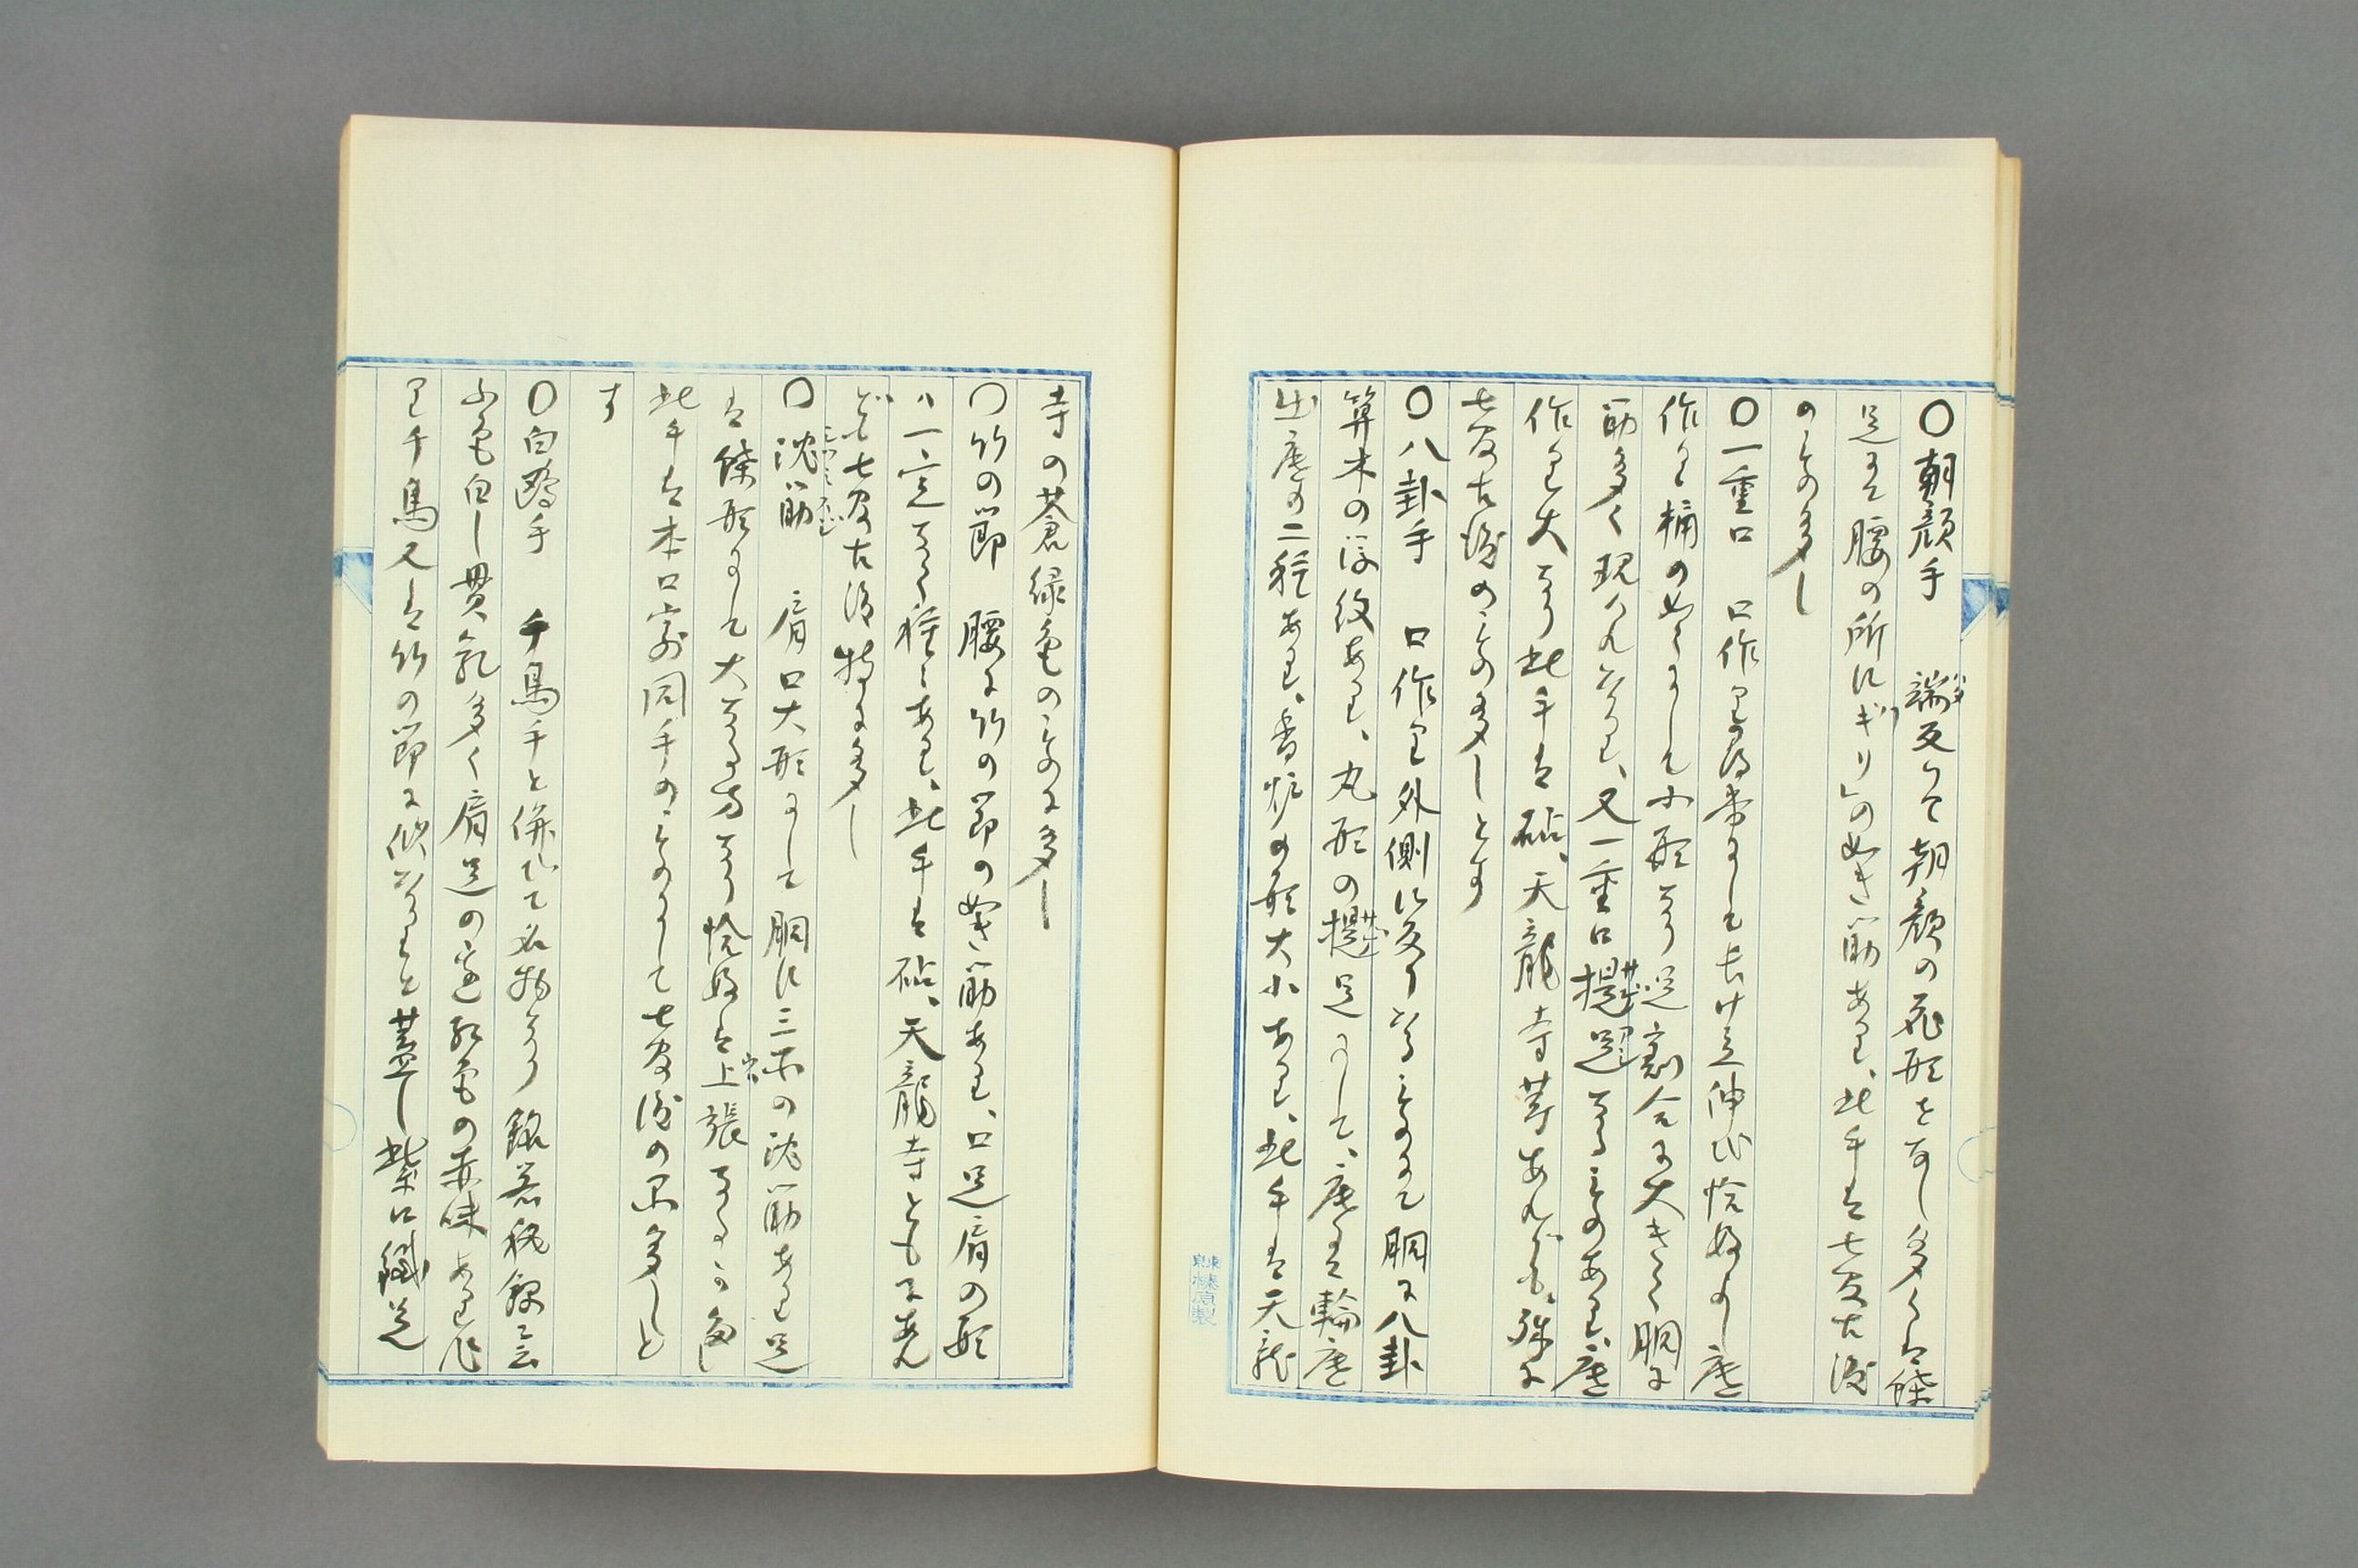 〇朝顔手 端反りて朝顔の花形をなし多くは餘
足にて腰の所に「ギリ」の如き筋あり、此手は七官古渡
のもの多し
〇一重口 口作り より 底
作り桶の如くにして小形なり足割合に大きく胴に
筋多く現はれ居れり、又一重口揑足なるものあり、底
作り大なり此手は砧、天龍寺等あれども、殊に
七官古渡のもの多しとす
〇八卦手 口作り外側に反り居るものにて胴に八卦
算木の浮紋あり、丸形の揑足にして、底には輪底
出底の二種あり、香炉の形大小あり、此手は天龍
寺の蒼緑色のものに多し
〇竹の節 腰に竹の節の如き筋あり、口足肩の形
ハ一定なく種々あり、此手は砧、天龍寺ともにあれ
ども七官古渡特に多し
〇沈筋 肩口大形にして胴に三本の沈筋あり足
は餘形にして大なる方なり恰好は上張なるもの多し
此手は本口寄同手のものにして七官渡の品多しと
す
〇白鴎手 千鳥手と併びて名物なり 銘若狭 云
ふ色白し貫乳多く肩足の邊 色の赤味あり作
り千鳥又は竹の節に似 居れりと蓋し紫口鐵足
榛原製